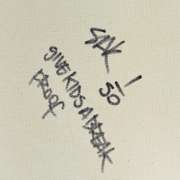 SO
GIVE KIDS A BREAK
PROOF